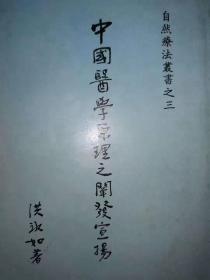 自然療法叢書之三
中國醫學原理之闡發宣揚
洪承如著